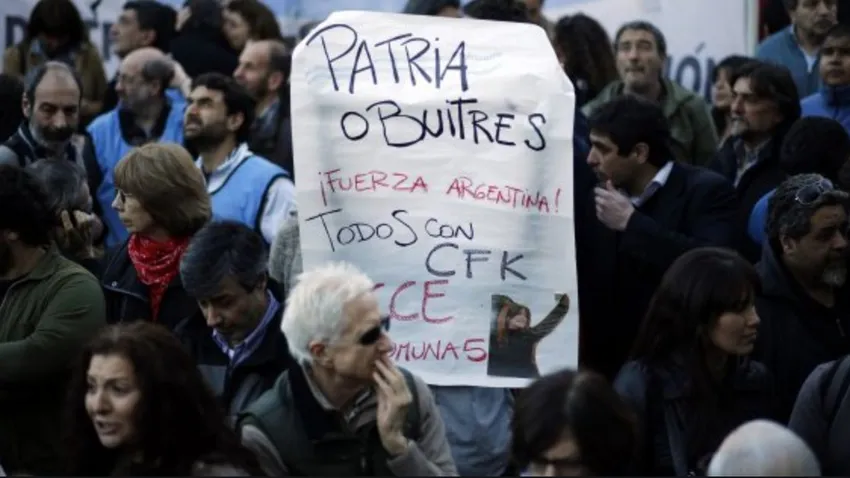 PATRIA
O BUITRES
¡FUERZA ARGENTINA!
TODOS CON
CFK
CCE
OMUNA 5